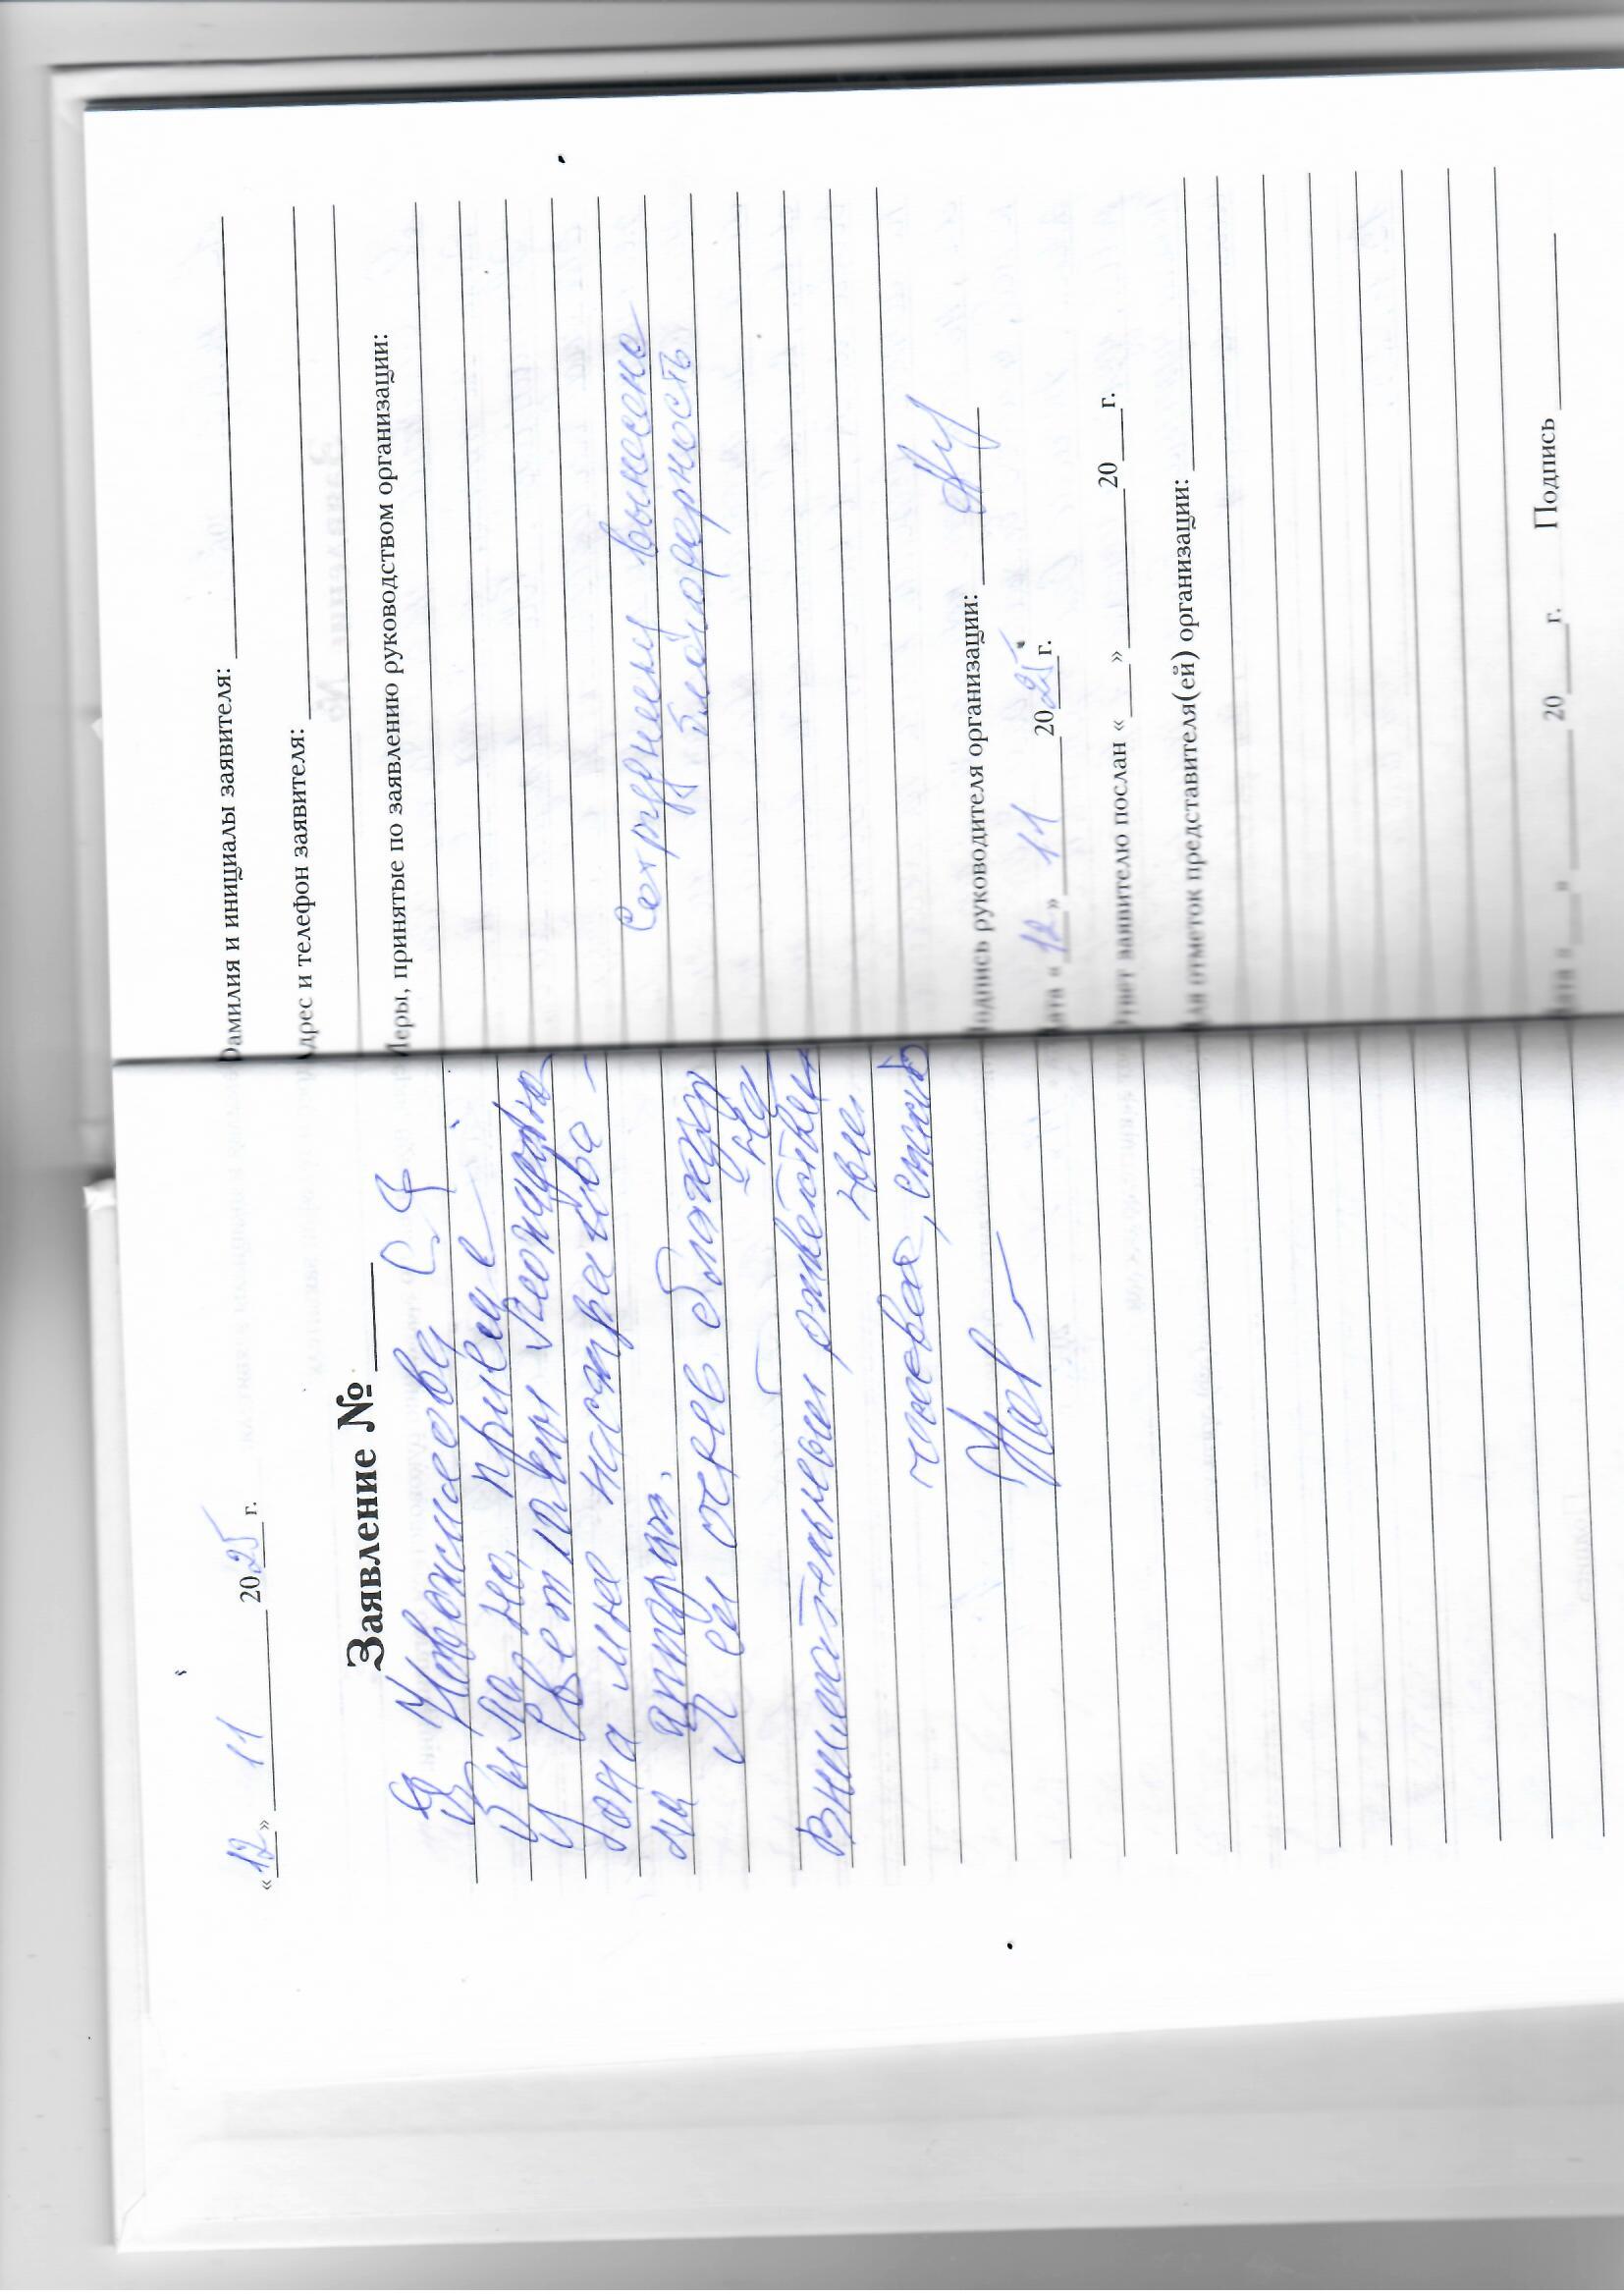 «12» 11 2025 г.
Заявление № ___
Я
была на приеме
у Светланы Леонидовны
она мне исправила
ла аппарат.
Я ей очень благодарна
Внимательный, отзывчивый
человек, спасибо
Фамилия и инициалы заявителя:
Адрес и телефон заявителя:
Меры, принятые по заявлению руководством организации:
Сотруднику вынесена
благодарность
Подпись руководителя организации:
Дата «12» 11 2025 г.
Ответ заявителю послан «___» ___ 20___г.
Для отметок представителя(ей) организации:
Дата «___» ___ 20___г. Подпись